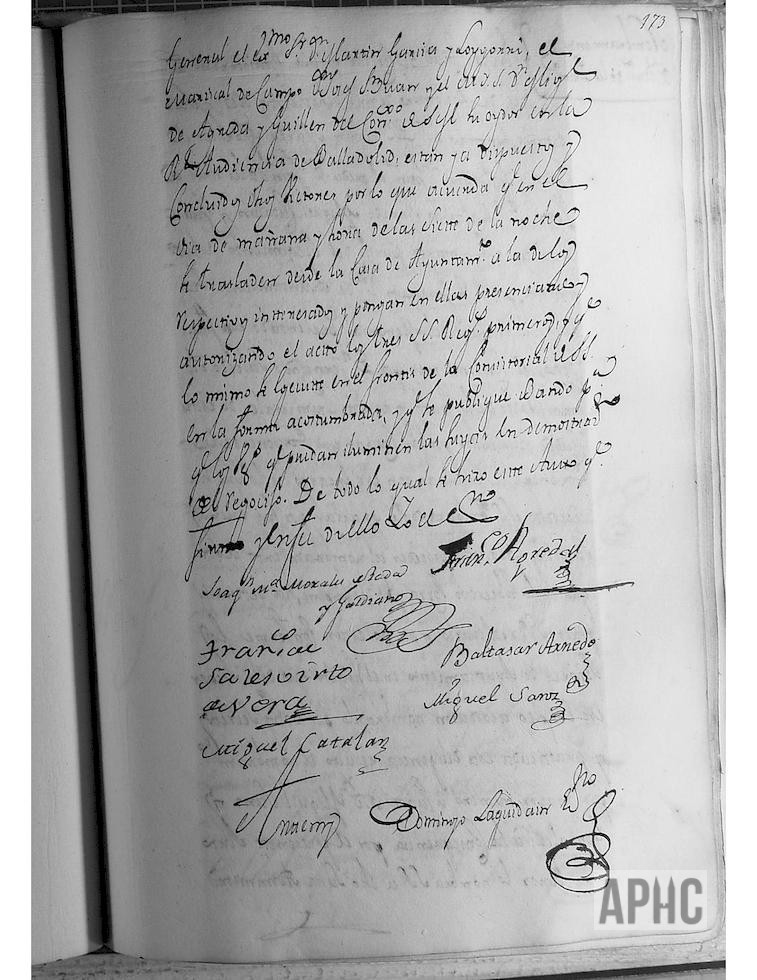 173
General el ex.mo S.r D.n Martin Garcia y Loygorri, el
Mariscal de Campo D.n Josef S.n Juan y el S. D.n Mig.l
de Agreda y Guillen del Con.xo de S. M. su oydor en la
R.l Audiencia de Balladolid, estan ya dispuestos y
Concluidos dhos Retratos por lo que acuerda q.e en el
dia de mañana y hora de las siete de la noche
se trasladen desde la Casa de Ayuntam.to a la de los
respectivos interesados y pongan en ellas presenciando y
autorizando el acto los tres SS. Reg.s primeros, y q.e
lo mismo se execute en el frontis de la Consistorial de SS.
en la forma acostumbrada, y q.e se publique Vando p.a
q.e los q.e puedan iluminen las suyas en demostraz.n
de regocijo. De todo lo qual se hizo este Auto q.e
firmo y en fee de ello Yo el ess.no
Joaq.n M.a Morales de Rada
y Galdiano
Fran.co Agreda
Fran.co de
Sales Virto
de Vera
Baltasar Arnedo
Miguel Sanz
Miguel Catalan
Ante mi
Domingo Laquidain Ess.no
APHC